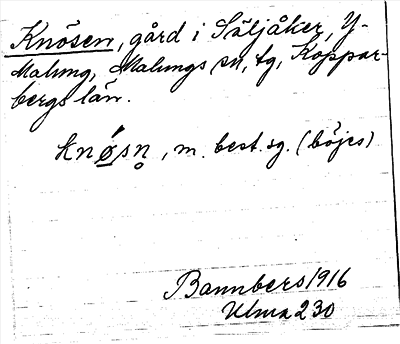 Knösen, gård i Säljåker, Y-
Malung, Malungs sn, tg, Koppar-
bergs län.
knø̀sn̥, m. best. sg. (böjes)
Bannbers 1916
Ulma 230